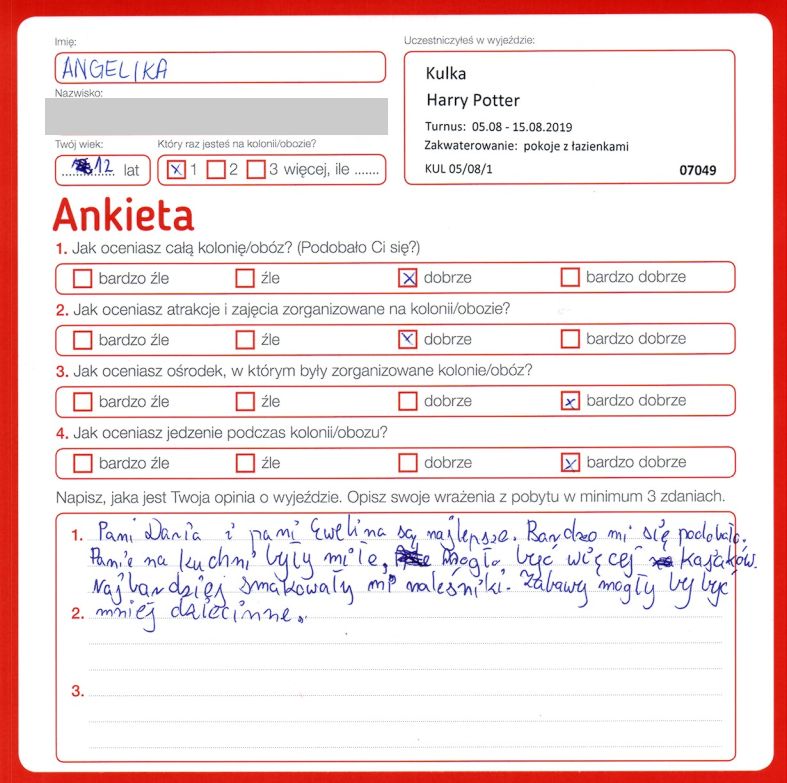 Imię:
ANGELIKA
Nazwisko:
Twój wiek:
12 lat
Który raz jesteś na kolonii/obozie?
1 2 3 więcej, ile .......
Uczestniczyłeś w wyjeździe:
Kulka
Harry Potter
Turnus: 05.08 - 15.08.2019
Zakwaterowanie: pokoje z łazienkami
KUL 05/08/1 07049
Ankieta
1. Jak oceniasz całą kolonię/obóz? (Podobało Ci się?)
bardzo źle źle dobrze bardzo dobrze
2. Jak oceniasz atrakcje i zajęcia zorganizowane na kolonii/obozie?
bardzo źle źle dobrze bardzo dobrze
3. Jak oceniasz ośrodek, w którym były zorganizowane kolonie/obóz?
bardzo źle źle dobrze bardzo dobrze
4. Jak oceniasz jedzenie podczas kolonii/obozu?
bardzo źle źle dobrze bardzo dobrze
Napisz, jaka jest Twoja opinia o wyjeździe. Opisz swoje wrażenia z pobytu w minimum 3 zdaniach.
1. Pani Daria i pani Ewelina są najlepsze. Bardzo mi się podobało.
Panie na kuchni były miłe, mogło być więcej kajaków.
Najbardziej smakowały mi naleśniki. Zabawy mogły by być
2. mniej dziecinne.
3.